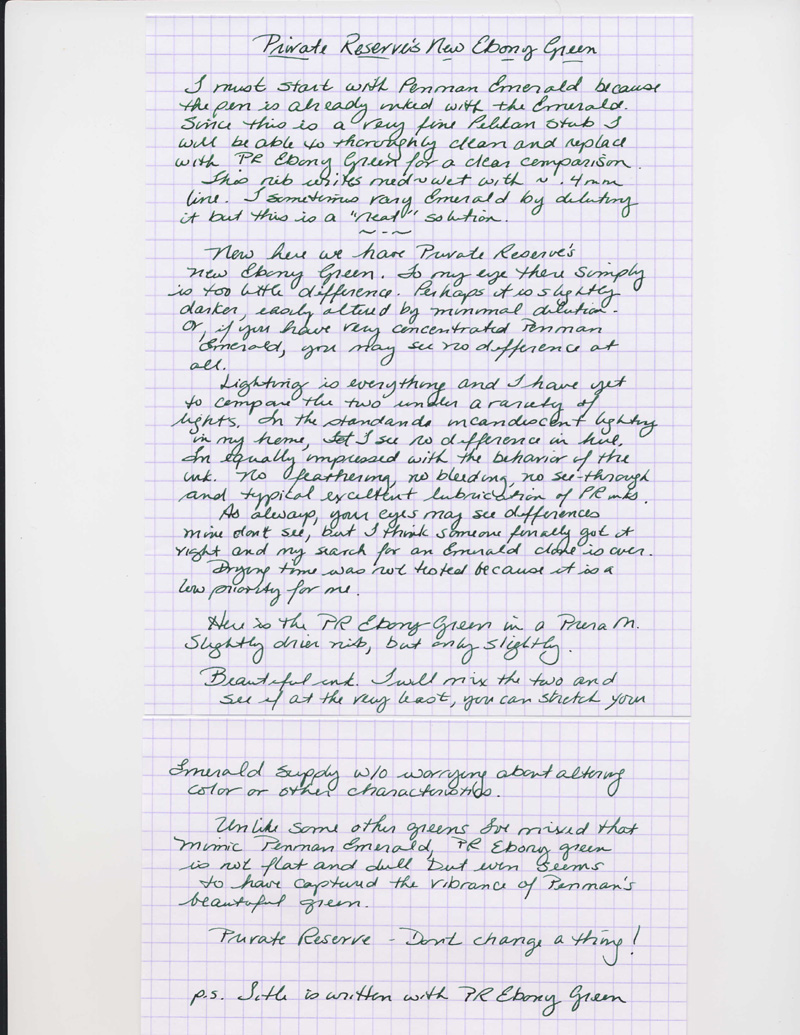 Private Reserve's New Ebony Green
I must start with Penman Emerald because
the pen is already inked with the Emerald.
Since this is a very fine Pelikan stub I
will be able to thoroughly clean and replace
with PR Ebony Green for a clear comparison.
This nib writes med~wet with ~ .4mm
line. I sometimes vary Emerald by diluting
it but this is a "neat" solution.
~ - ~
Now here we have Private Reserve's
new Ebony Green. To my eye there simply
is too little difference. Perhaps it is slightly
darker, easily altered by minimal dilution.
Or, if you have very concentrated Penman
Emerald, you may see no difference at
all.
Lighting is everything and I have yet
to compare the two under a variety of
lights. In the standard incandescent lighting
in my home, I see no difference in hue.
I'm equally impressed with the behavior of the
ink. No feathering, no bleeding, no see-through
and typical excellent lubrication of PR inks.
As always, your eyes may see differences
mine don't see, but I think someone finally got it
right and my search for an Emerald clone is over.
Drying time was not tested because it is a
low priority for me.
Here is the PR Ebony Green in a Prera M.
Slightly drier nib, but only slightly.
Beautiful ink. I will mix the two and
see if at the very least, you can stretch your
Emerald supply w/o worrying about altering
color or other characteristics.
Unlike some other greens I've mixed that
mimic Penman Emerald, PR Ebony green
is not flat and dull but even seems
to have captured the vibrance of Penman's
beautiful green.
Private Reserve - Don't change a thing!
p.s. Title is written with PR Ebony Green